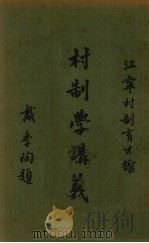 江寧村制育才館
村制學講義
戴季陶題